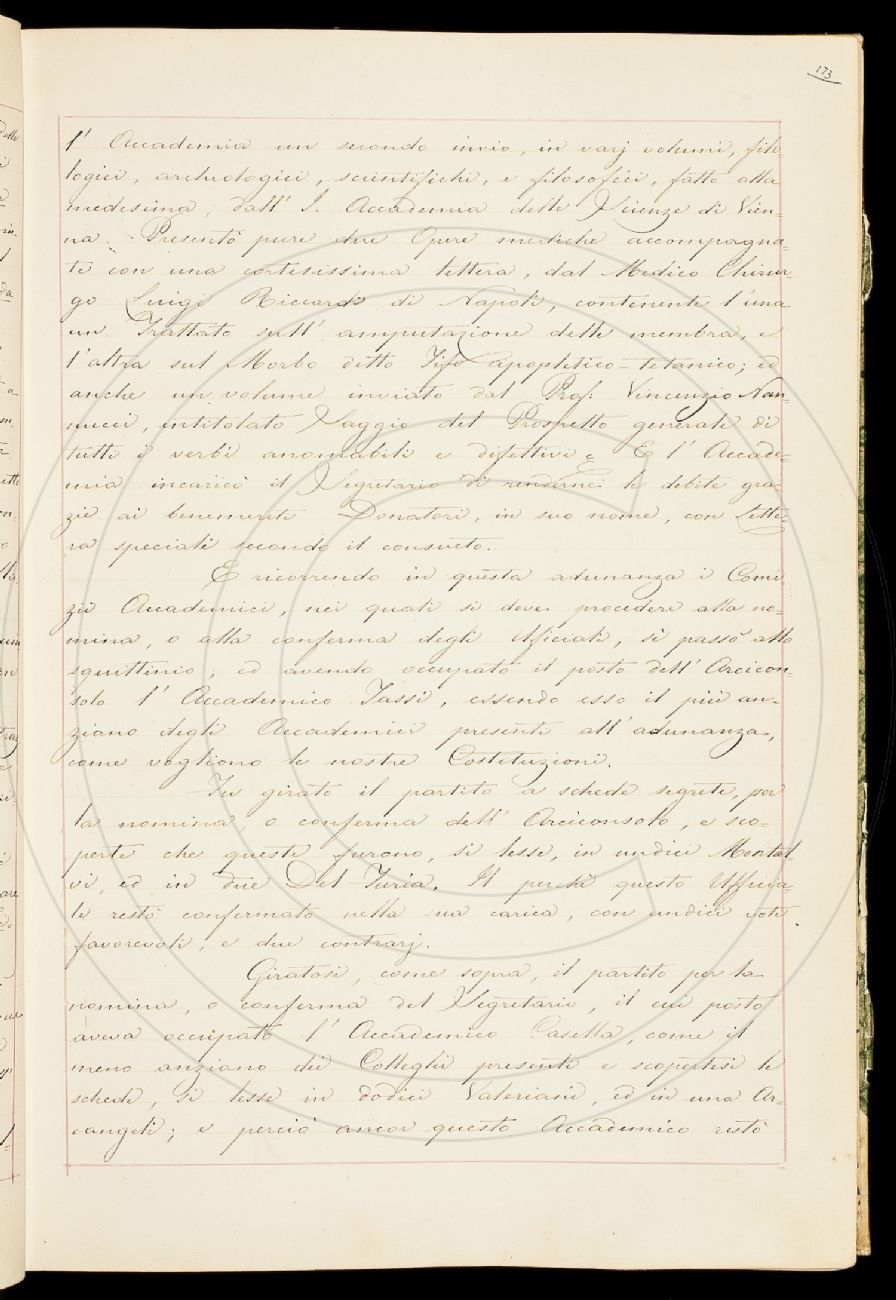 173
l' Accademia un secondo invio, in varj volumi, filo-
logici, archeologici, scientifichi, e filosofici, fatto alla
medesima, dall' I. Accademia delle Scienze di Vien-
na. Presentò pure due Opere mediche accompagna-
te con una cortesissima lettera, dal Medico Chirur-
go Luigi Riccardi di Napoli, contenente l'una
un Trattato sull' amputazione delle membra, e
l'altra sul Morbo detto Tifo apopletico-tetanico; ed
anche un volume inviato dal Prof. Vincenzio Nan-
nucci, intitolato Saggio del Prospetto generale di
tutti i verbi anomali e difettivi. E l' Accade-
mia incaricò il Segretario di renderne le debite gra-
zie ai benemeriti Donatori, in suo nome, con Lette-
ra speciale secondo il consueto.
E ricorrendo in questa adunanza i Comi-
zii Accademici, nei quali si deve procedere alla no-
mina, o alla conferma degli Uficiali, si passò allo
squittinio; ed avendo occupato il posto dell' Arcicon-
solo l' Accademico Tassi, essendo esso il più an-
ziano degli Accademici presenti all' adunanza,
come vogliono le nostre Costituzioni.
Fu girato il partito a schede segrete, per
la nomina, o conferma dell' Arciconsolo, e sco-
perte che queste furono, si lesse, in undici Montal
vi, ed in due Del-Furia. Il perchè questo Ufficia-
le restò confermato nella sua carica, con undici voti
favorevoli, e due contrarj.
Giratosi, come sopra, il partito per la
nomina, o conferma del Segretario, il cui posto
aveva occupato l' Accademico Casella, come il
meno anziano dei Colleghi presenti e scopertesi le
schede, si lesse in dodici Valeriani, ed in una Ar-
cangeli; e perciò ancor questo Accademico restò